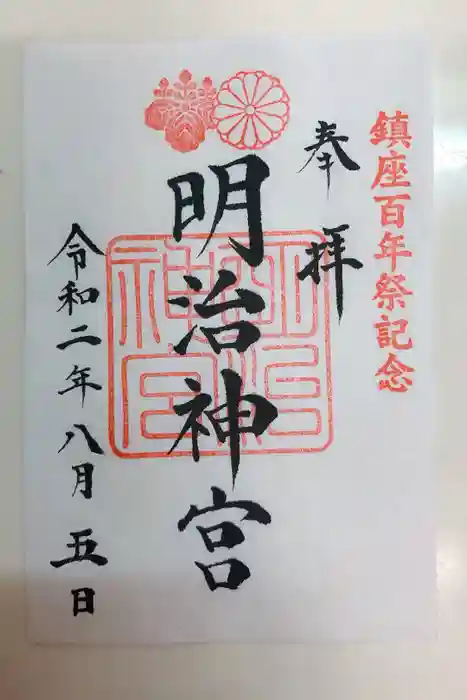 鎮座百年祭記念
奉拝
明治神宮
令和二年八月五日
明治神宮